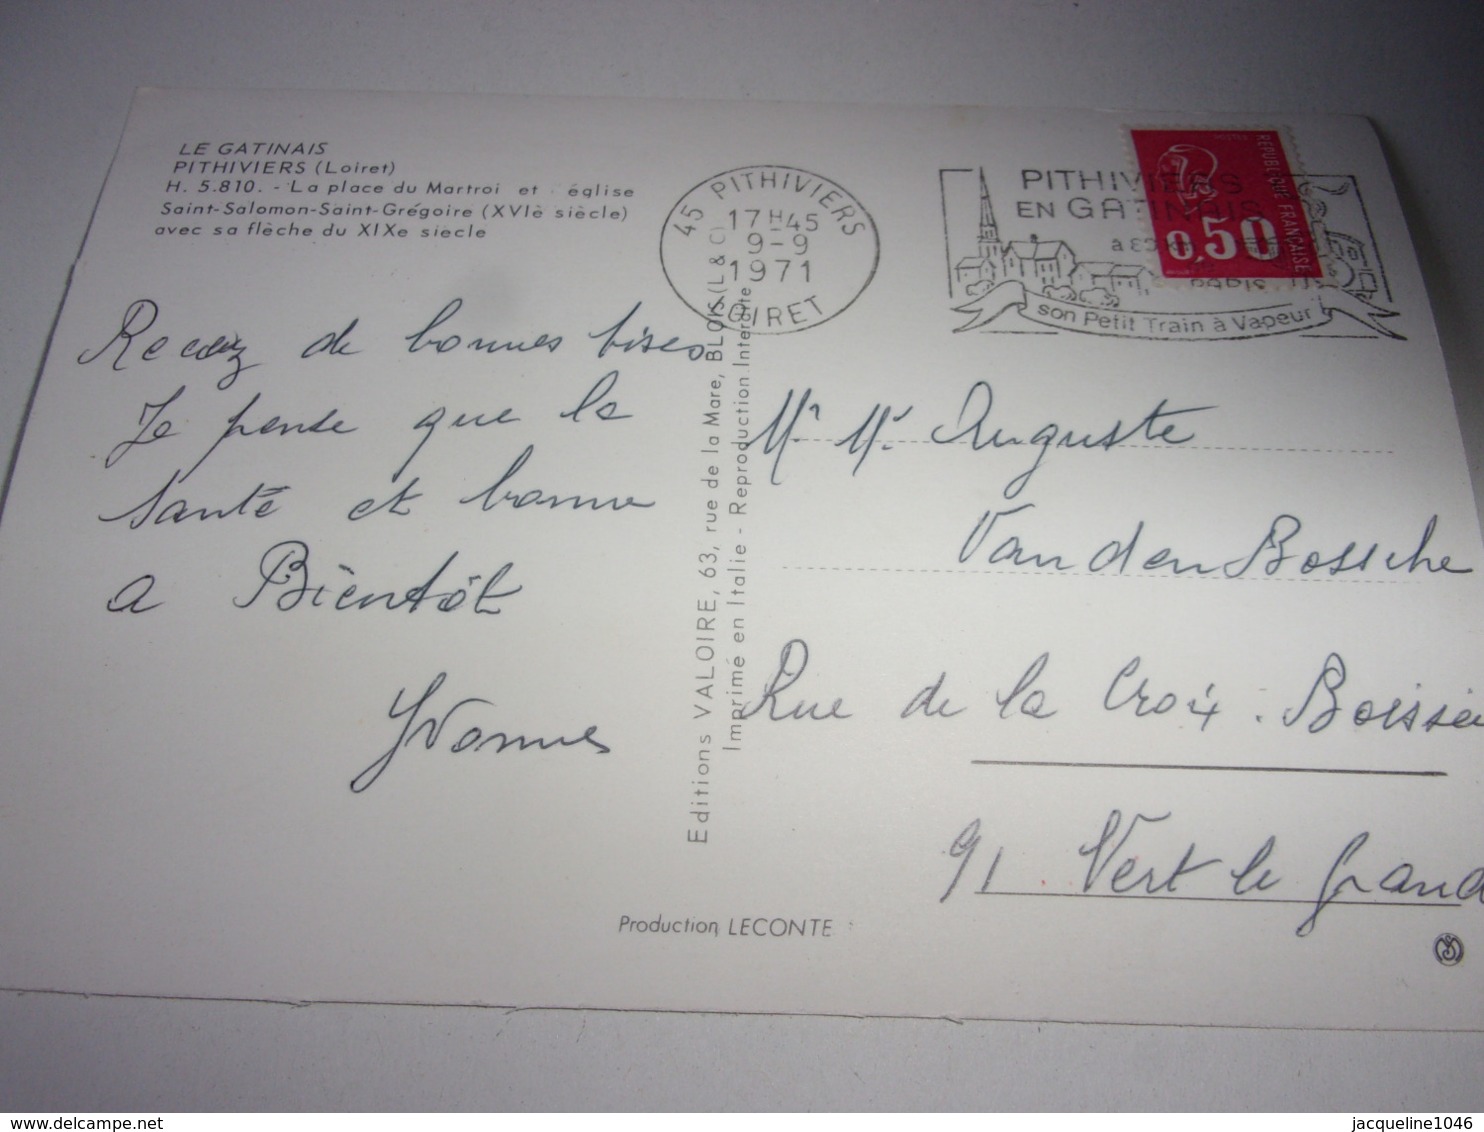 LE GATINAIS
PITHIVIERS (Loiret)
H. 5.810. - La place du Martroi et église
Saint-Salomon-Saint-Grégoire (XVIè siècle)
avec sa flèche du XIXe siècle
45 PITHIVIERS
17 H 45
9-9
1971
LOIRET
PITHIVIERS
EN GATINAIS
son Petit Train à Vapeur
REPUBLIQUE FRANÇAISE
0,50
Recevez de bonnes bises
Je pense que la
santé et bonne
a Bientôt
Yvonne
Editions VALOIRE, 63, rue de la Mare, BLOIS (L & C)
Imprimé en Italie - Reproduction Interdite
Mr Me Auguste
Vanden Bossche
Rue de la Croix. Boissé
91 Vert le grand
Production LECONTE
delcampe.net
jacqueline1046